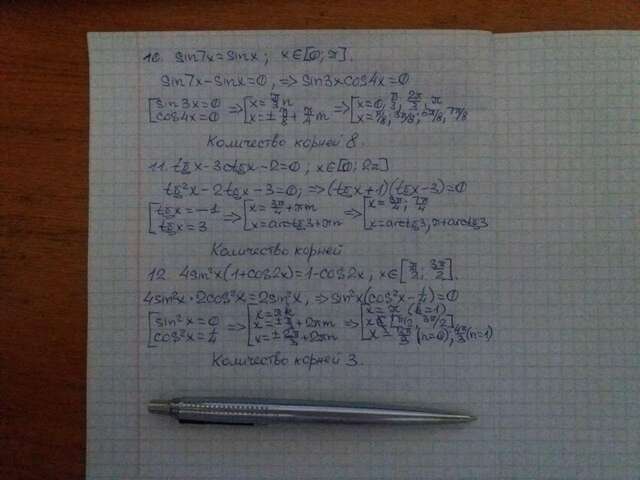 10. sin7x=sinx; x∈[0;π].
sin7x-sinx=0, => sin3xcos4x=0
[sin3x=0 => [x=π/3 n => [x=0, π/3, 2π/3, π
cos4x=0 x=±π/8+π/4 m x=π/8, 3π/8, 5π/8, 7π/8
Количество корней 8.
11. tgx-3ctgx-2=0; x∈[0; 2π]
tg²x-2tgx-3=0; => (tgx+1)(tgx-3)=0
[tgx=-1 => [x=3π/4+πm => [x=3π/4; 7π/4
tgx=3 x=arctg3+πn x=arctg3, π+arctg3
Количество корней
12. 4sin²x(1+cos2x)=1-cos2x, x∈[π/2; 3π/2].
4sin²x·2cos²x=2sin²x, => sin²x(cos²x-1/4)=0
[sin²x=0 => [x=πk => [x=π (k=1)
cos²x=1/4 x=±π/3+2πm x∉[π/2, 3π/2]
x=±2π/3+2πn x=2π/3 (n=0), 4π/3 (n=1)
Количество корней 3.